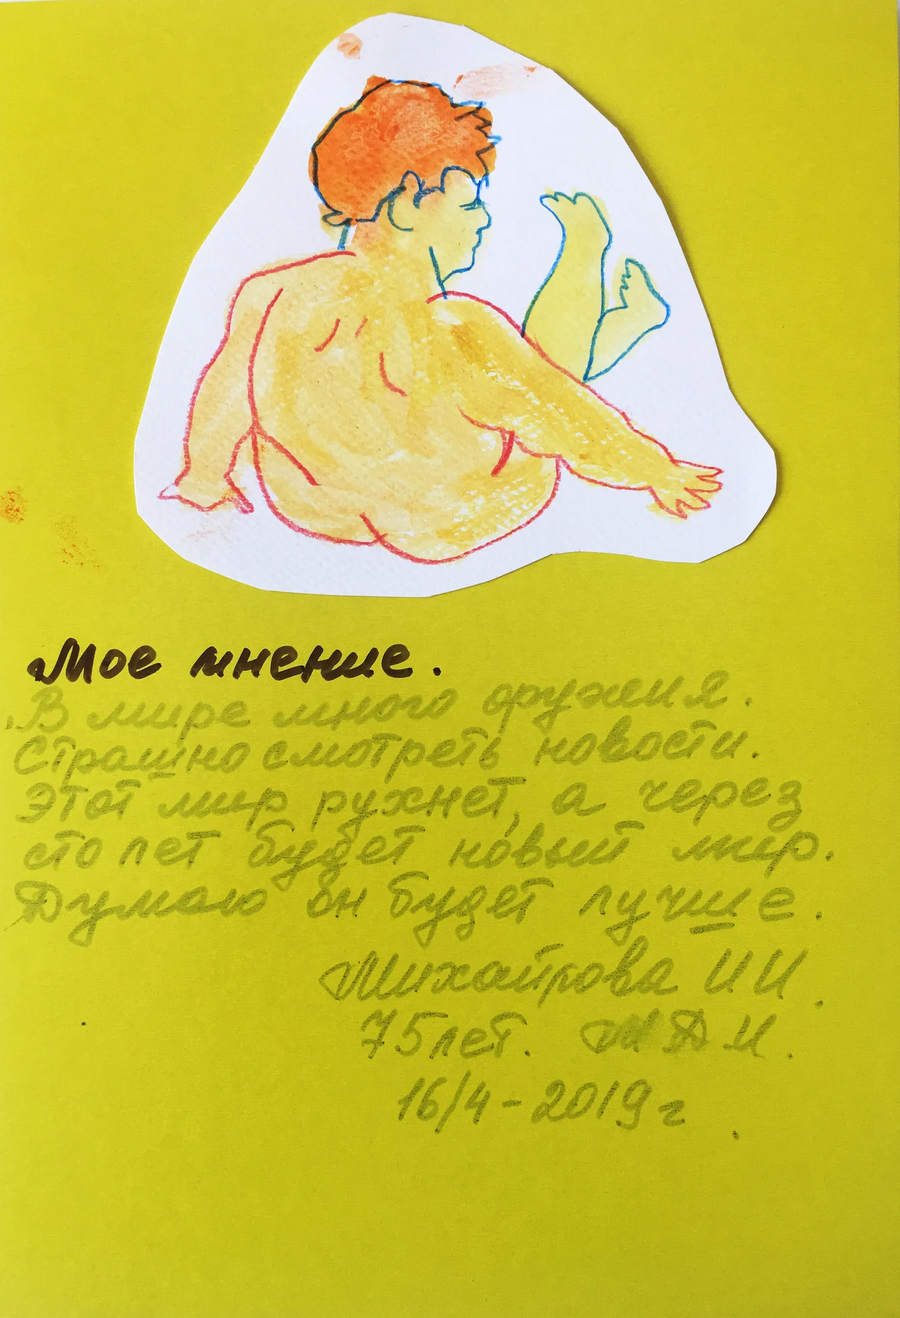 Мое мнение.
В мире много оружия.
Страшно смотреть новости.
Этот мир рухнет, а через
сто лет будет новый мир.
Думаю он будет лучше.
Михайлова И И.
75 лет. Д И.
16/4-2019 г.